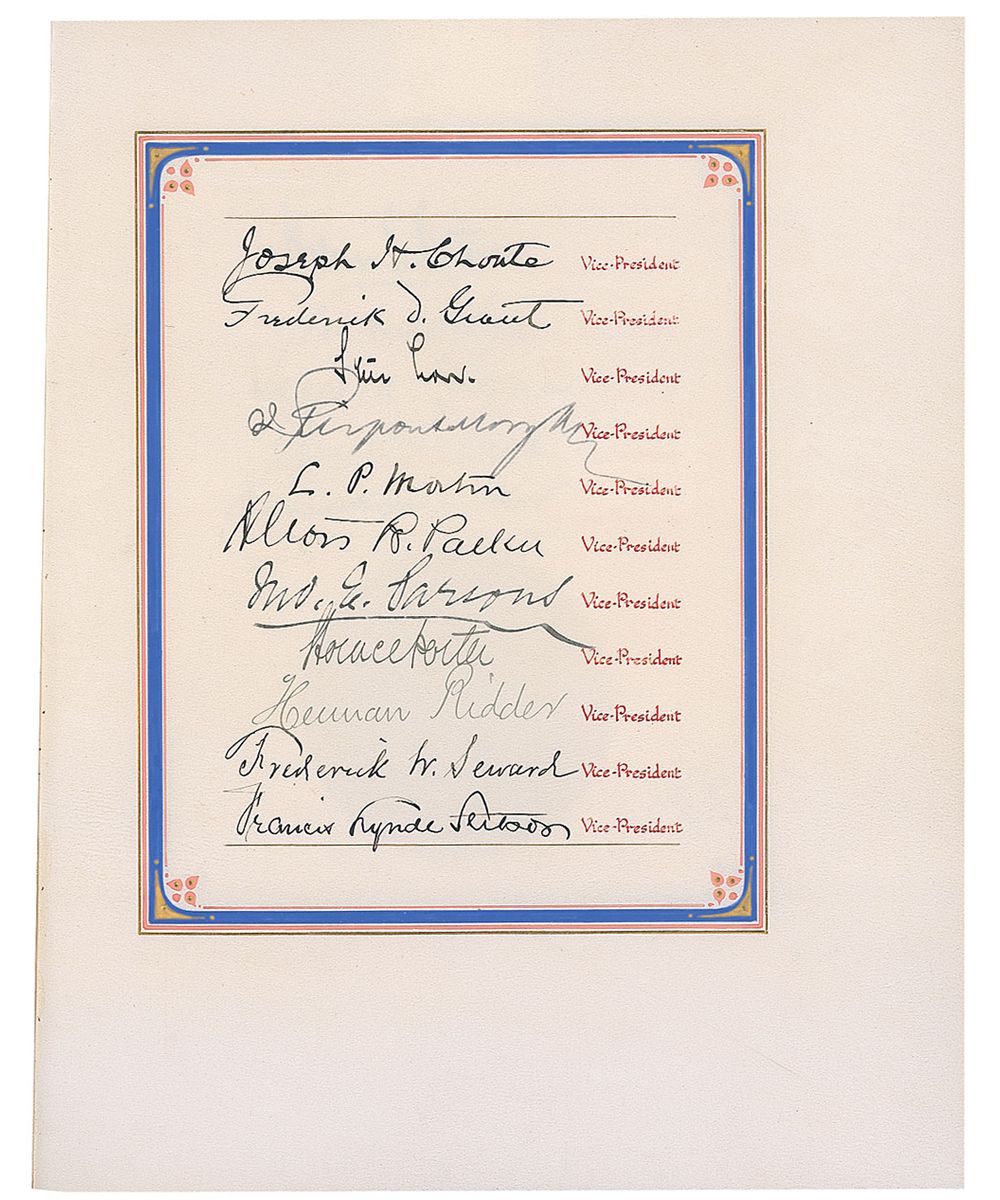 Joseph H. Choate Vice-President
Frederick D. Grant Vice-President
Seth Low. Vice-President
J Pierpont Morgan Vice-President
L. P. Morton Vice-President
Alton B. Parker Vice-President
Jno. E. Parsons Vice-President
Horace Porter Vice-President
Herman Ridder Vice-President
Frederick W. Seward Vice-President
Francis Lynde Stetson Vice-President